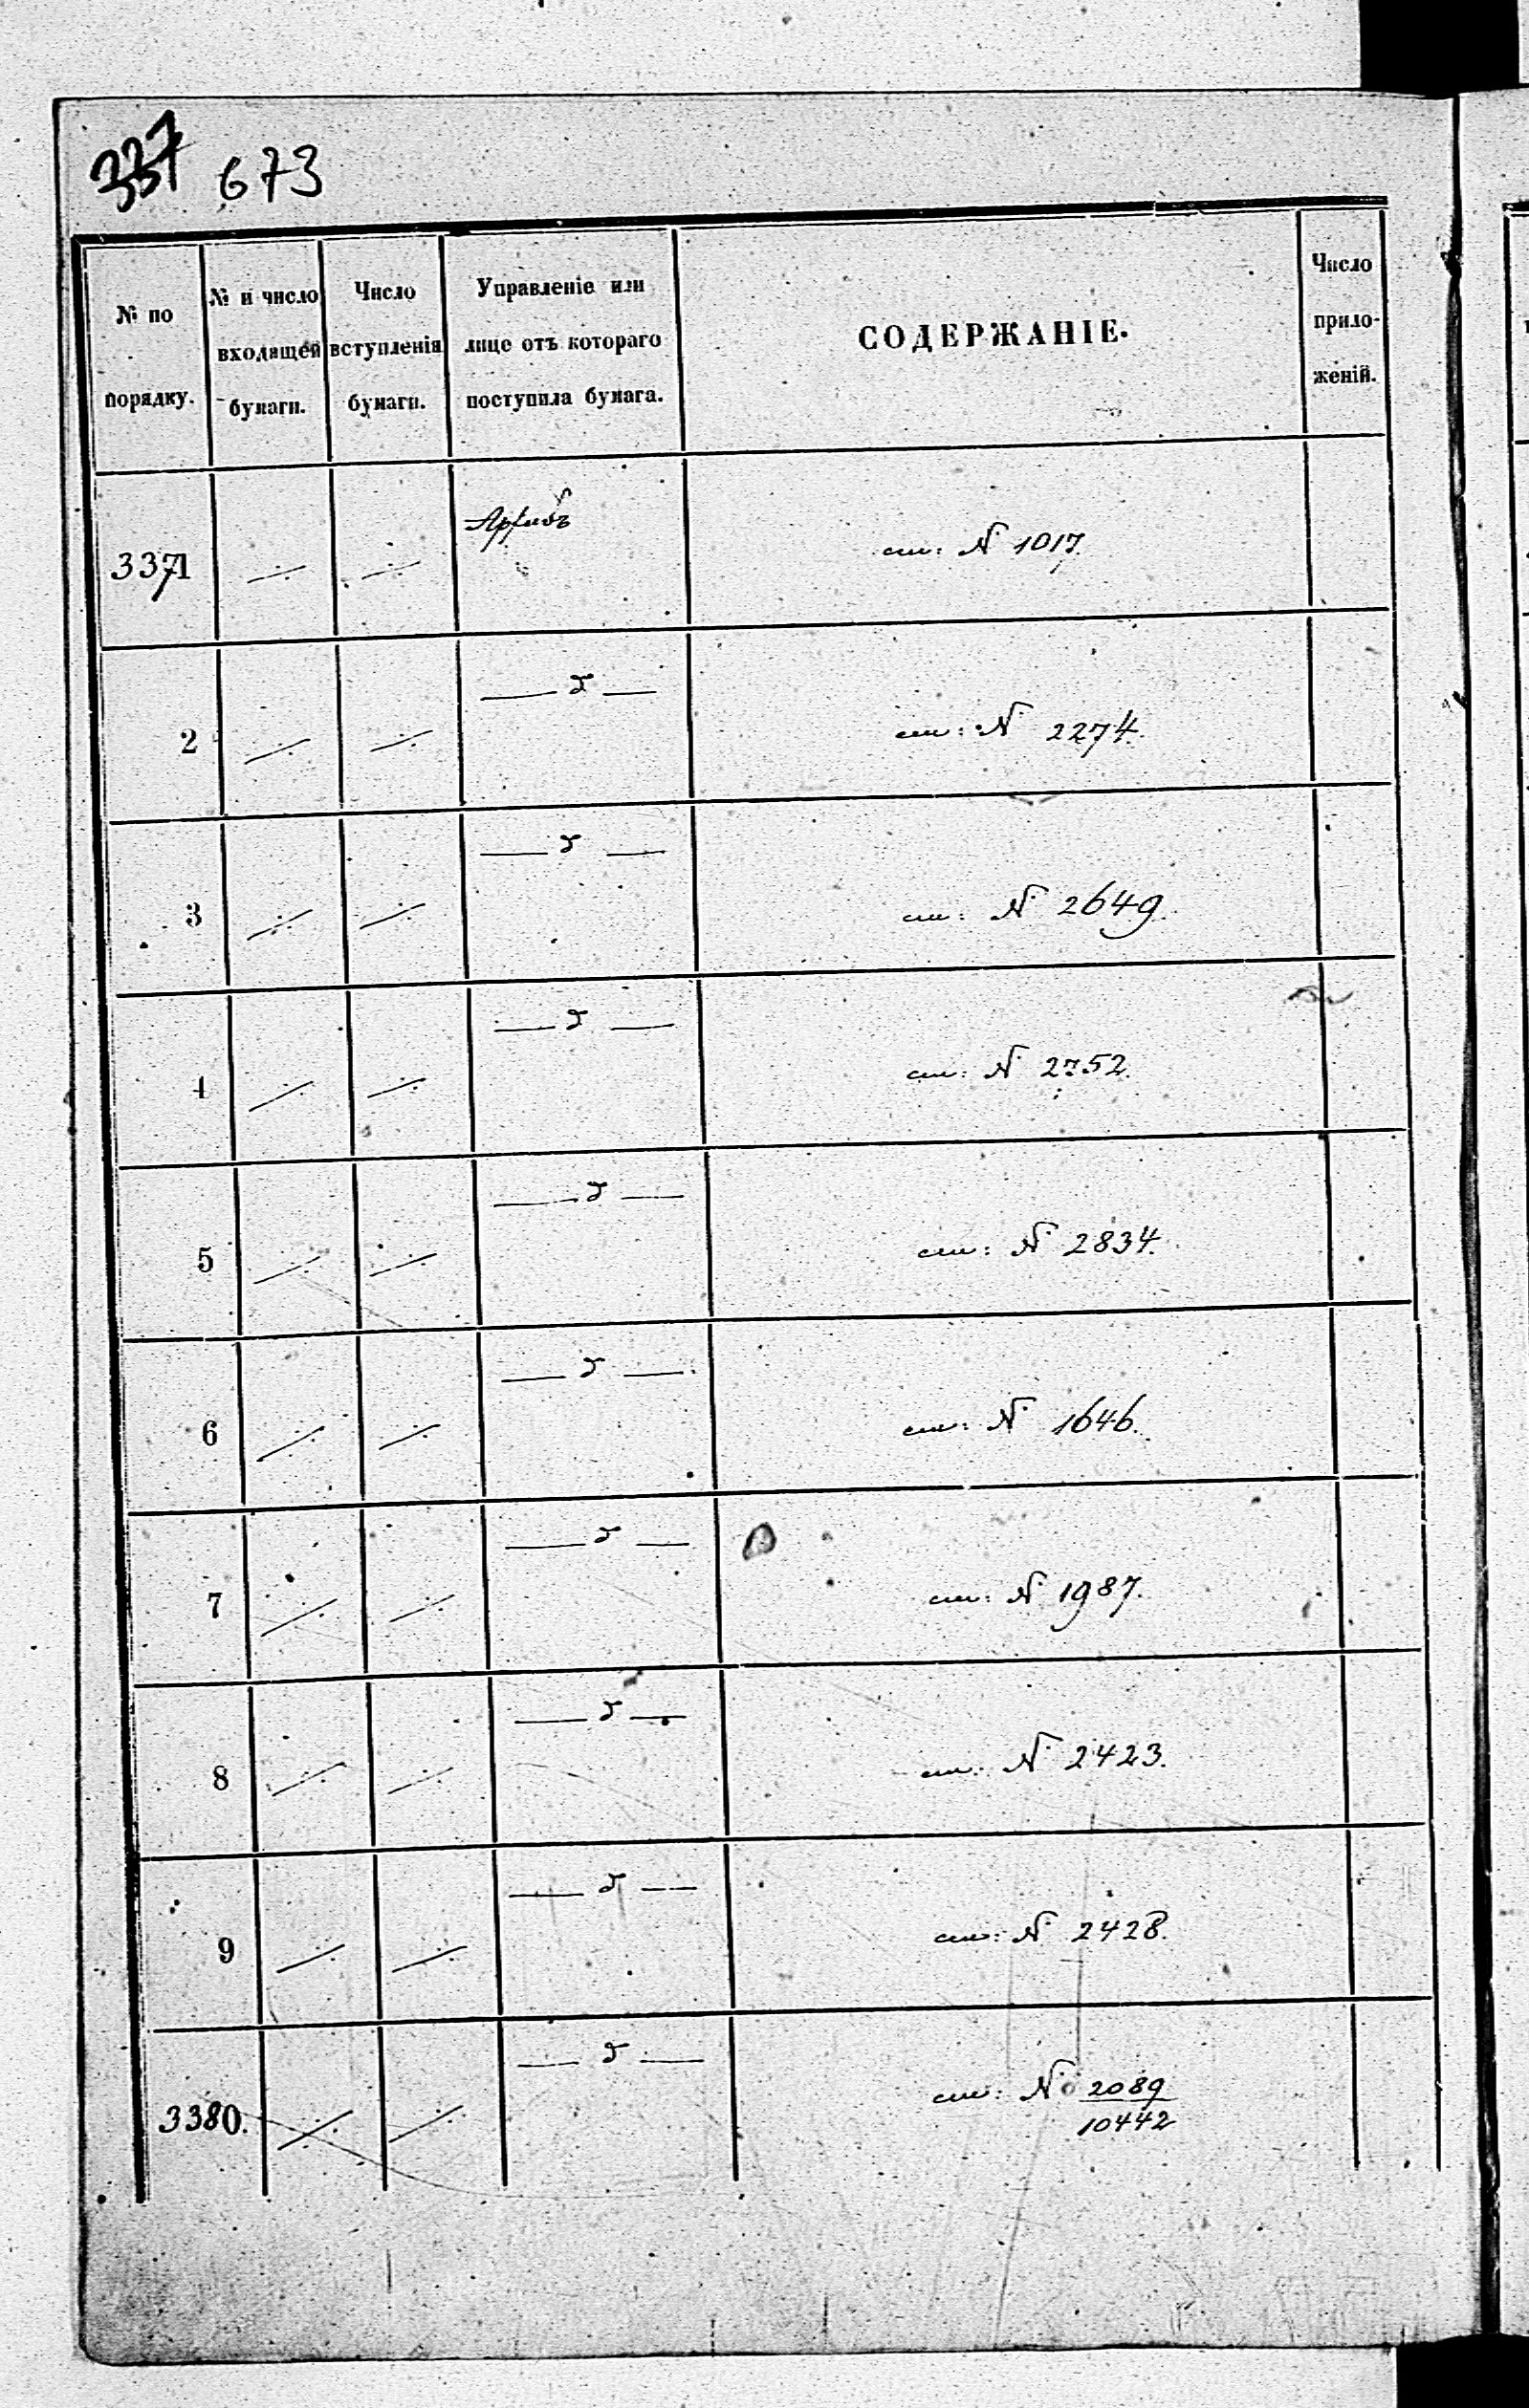 337 673
№ по порядку.
№ и число входящей бумаги.
Число вступленія бумаги.
Управленіе или лице отъ котораго поступила бумага.
СОДЕРЖАНІЕ.
Число приложеній.
3371 ·/· ·/· Архивъ см: № 1017.
2 ·/· ·/· — " — см: № 2274.
3 ·/· ·/· — " — см: № 2649.
4 ·/· ·/· — " — см: № 2752.
5 ·/· ·/· — " — см: № 2834.
6 ·/· ·/· — " — см: № 1646.
7 ·/· ·/· — " — см: № 1987.
8 ·/· ·/· — " — см: № 2423.
9 ·/· ·/· — " — см: № 2428.
3380. ·/· ·/· — " — см: № 2089/10442